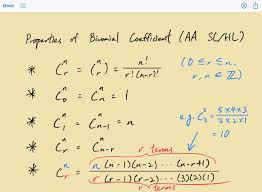 Done
Properties of Binomial Coefficient (AA SL/HL)
* C^n_r = (^n_r) = n!/r!(n-r)! (0 ≤ r ≤ n, r, n ∈ ℤ)
* C^n_0 = C^n_n = 1
* C^n_1 = C^n_{n-1} = n e.g. C^5_3 = 5×4×3/3×2×1 = 10
* C^n_r = C^n_{n-r}
r terms
* C^n_r = n(n-1)(n-2)...(n-r+1)/r(r-1)(r-2)...(3)(2)(1)
r terms